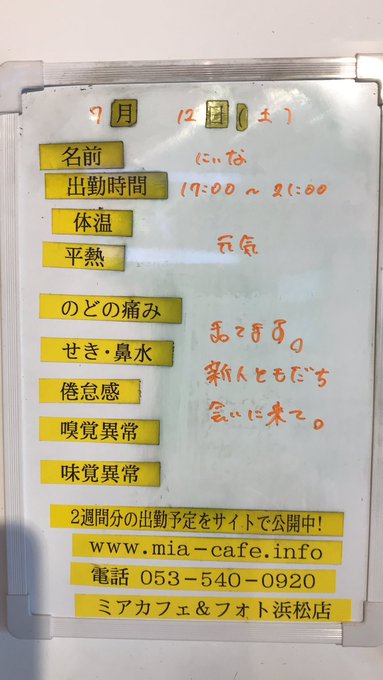 7月 12日(土)
名前 にいな
出勤時間 17:00 ~ 21:00
体温
平熱 元気
のどの痛み
せき・鼻水 まてます。
倦怠感 新人ともだち
嗅覚異常 会いに来て。
味覚異常
2週間分の出勤予定をサイトで公開中!
www.mia-cafe.info
電話 053-540-0920
ミアカフェ&フォト浜松店